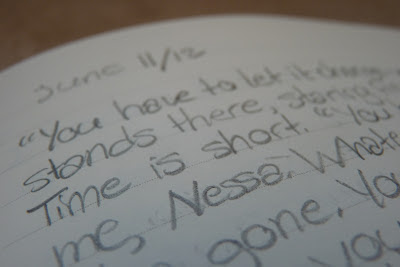 June 11/12
"You have to let it
stands there, staring
Time is short. "You
me, Nessa. Whate
gone, yo
you